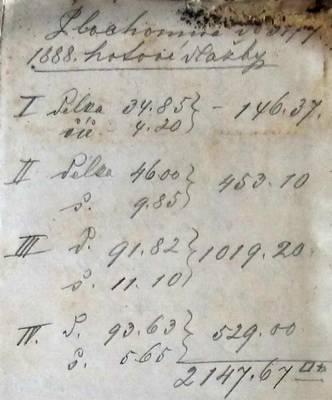 1888. hotové
I Délka 34.85 } - 146.37.
šíř 4.20
II Délka 46.00 } 453.10
š. 9.85
III D. 91.82 } 1019.20.
š. 11.10
IV. D. 93.63 } 529.00
š. 5.65
2147.67